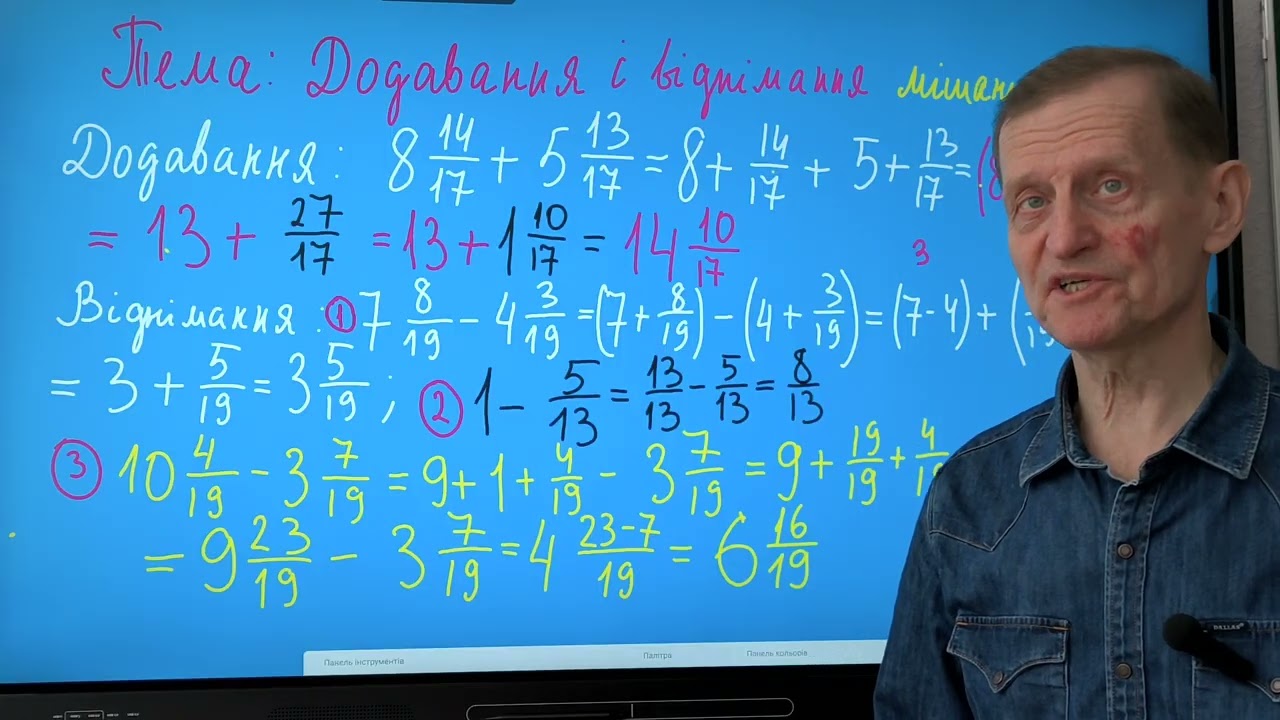 Тема: Додавання і віднімання мішан
Додавання: 8 14/17 + 5 13/17 = 8 + 14/17 + 5 + 13/17 = (8
= 13 + 27/17 = 13 + 1 10/17 = 14 10/17
3
Віднімання: ① 7 8/19 - 4 3/19 = (7 + 8/19) - (4 + 3/19) = (7 - 4) + (
= 3 + 5/19 = 3 5/19 ; ② 1 - 5/13 = 13/13 - 5/13 = 8/13
③ 10 4/19 - 3 7/19 = 9 + 1 + 4/19 - 3 7/19 = 9 + 19/19 + 4/19
= 9 23/19 - 3 7/19 = 4 23-7/19 = 6 16/19
Панель інструментів Палітра Панель кольорів
DALLAS